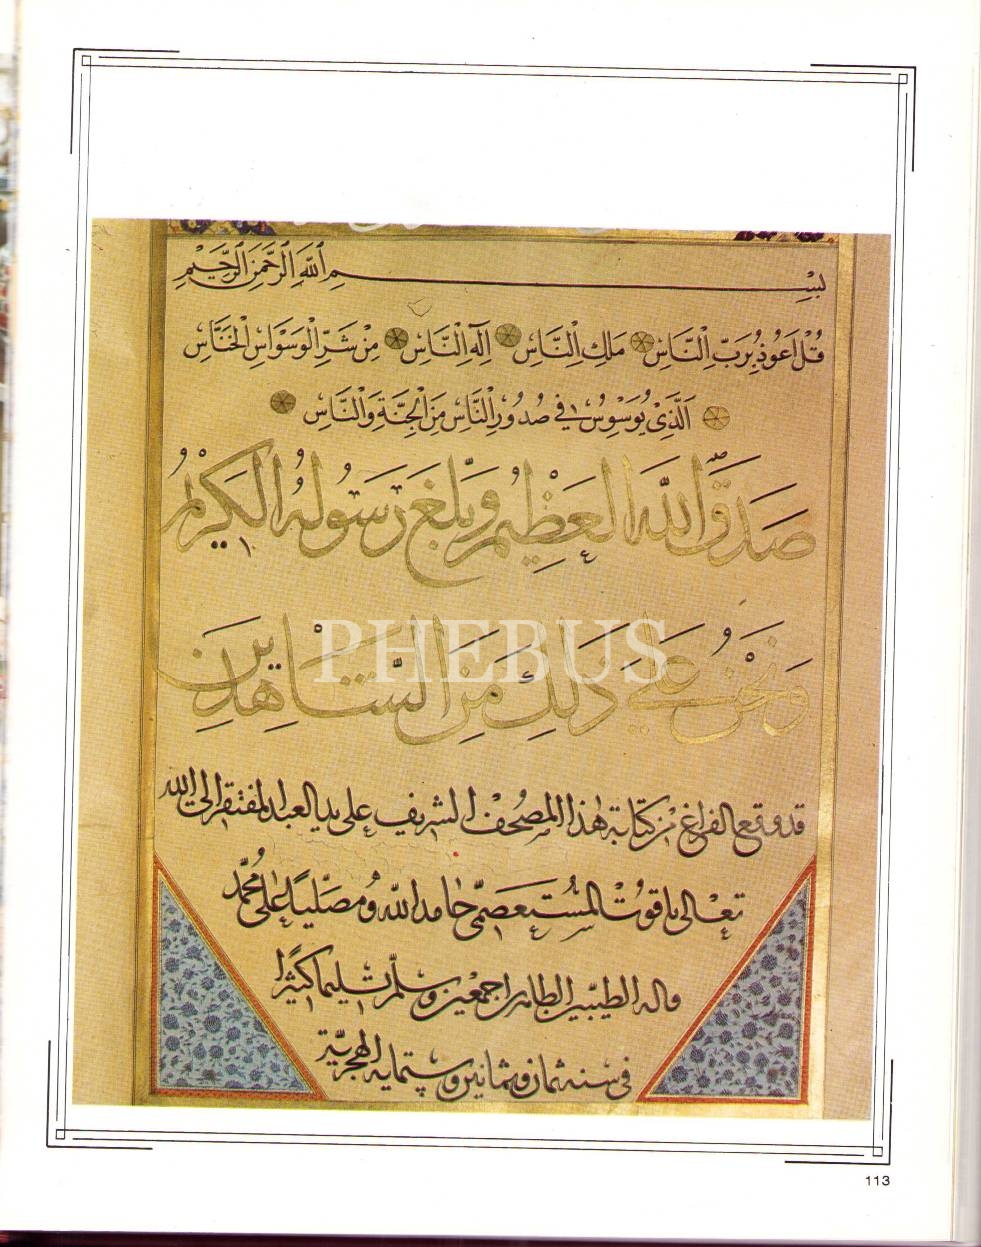 بِسْمِ اللَّهِ الرَّحْمَنِ الرَّحِيمِ
قُلْ اَعُوذُ بِرَبِّ النَّاسِ مَلِكِ النَّاسِ اِلَهِ النَّاسِ مِنْ شَرِّ الْوَسْوَاسِ الْخَنَّاسِ
اَلَّذِي يُوَسْوِسُ فِي صُدُورِ النَّاسِ مِنَ الْجِنَّةِ وَالنَّاسِ
صَدَقَ اللَّهُ الْعَظِيمُ وَبَلَّغَ رَسُولُهُ الْكَرِيمُ
وَنَحْنُ عَلَى ذَلِكَ مِنَ الشَّاهِدِينَ
PHEBUS
قد وقع الفراغ من كتابة هذا المصحف الشريف على يد العبد المفتقر الى الله
تعالى ياقوت المستعصمي حامدا لله ومصليا على محمد
واله الطيبين الطاهرين اجمعين وسلم تسليما كثيرا
في سنه ثمان وثمانين وستمايه الهجرية
113